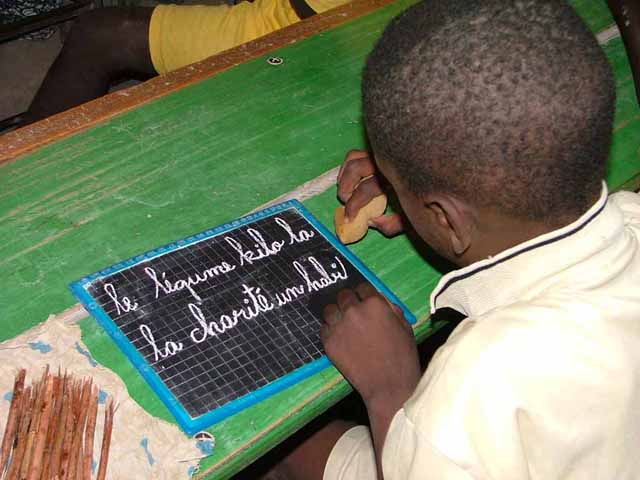 le légume kilo la
la charité un habi